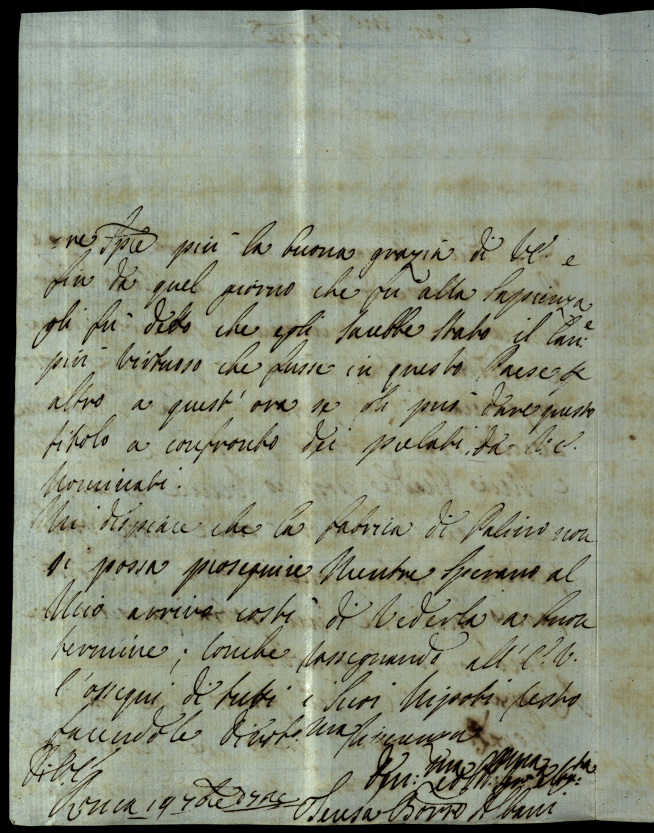 -re Spie più la buona grazia di V.E. e
fin da quel giorno che fu alla Sapienza
gli fu detto che egli sarebbe stato il Car.e
più virtuoso che fusse in questo Paese
altro a quest'ora se gli può dare questo
titolo a confronto dei prelati da V.E.
Nominati.
Mi dispiace che la fabrica di Palino non
si possa proseguire Mentre Speravo al
Mio arrivo costì di Vederla a buon
termine; Conche rassegnando all'E.V.
l'ossequi di tutti i Suoi Nipoti resto
facendole divot.ma riverenza
Di V.E.
Roma 19 7bre
Teresa Borro Albani